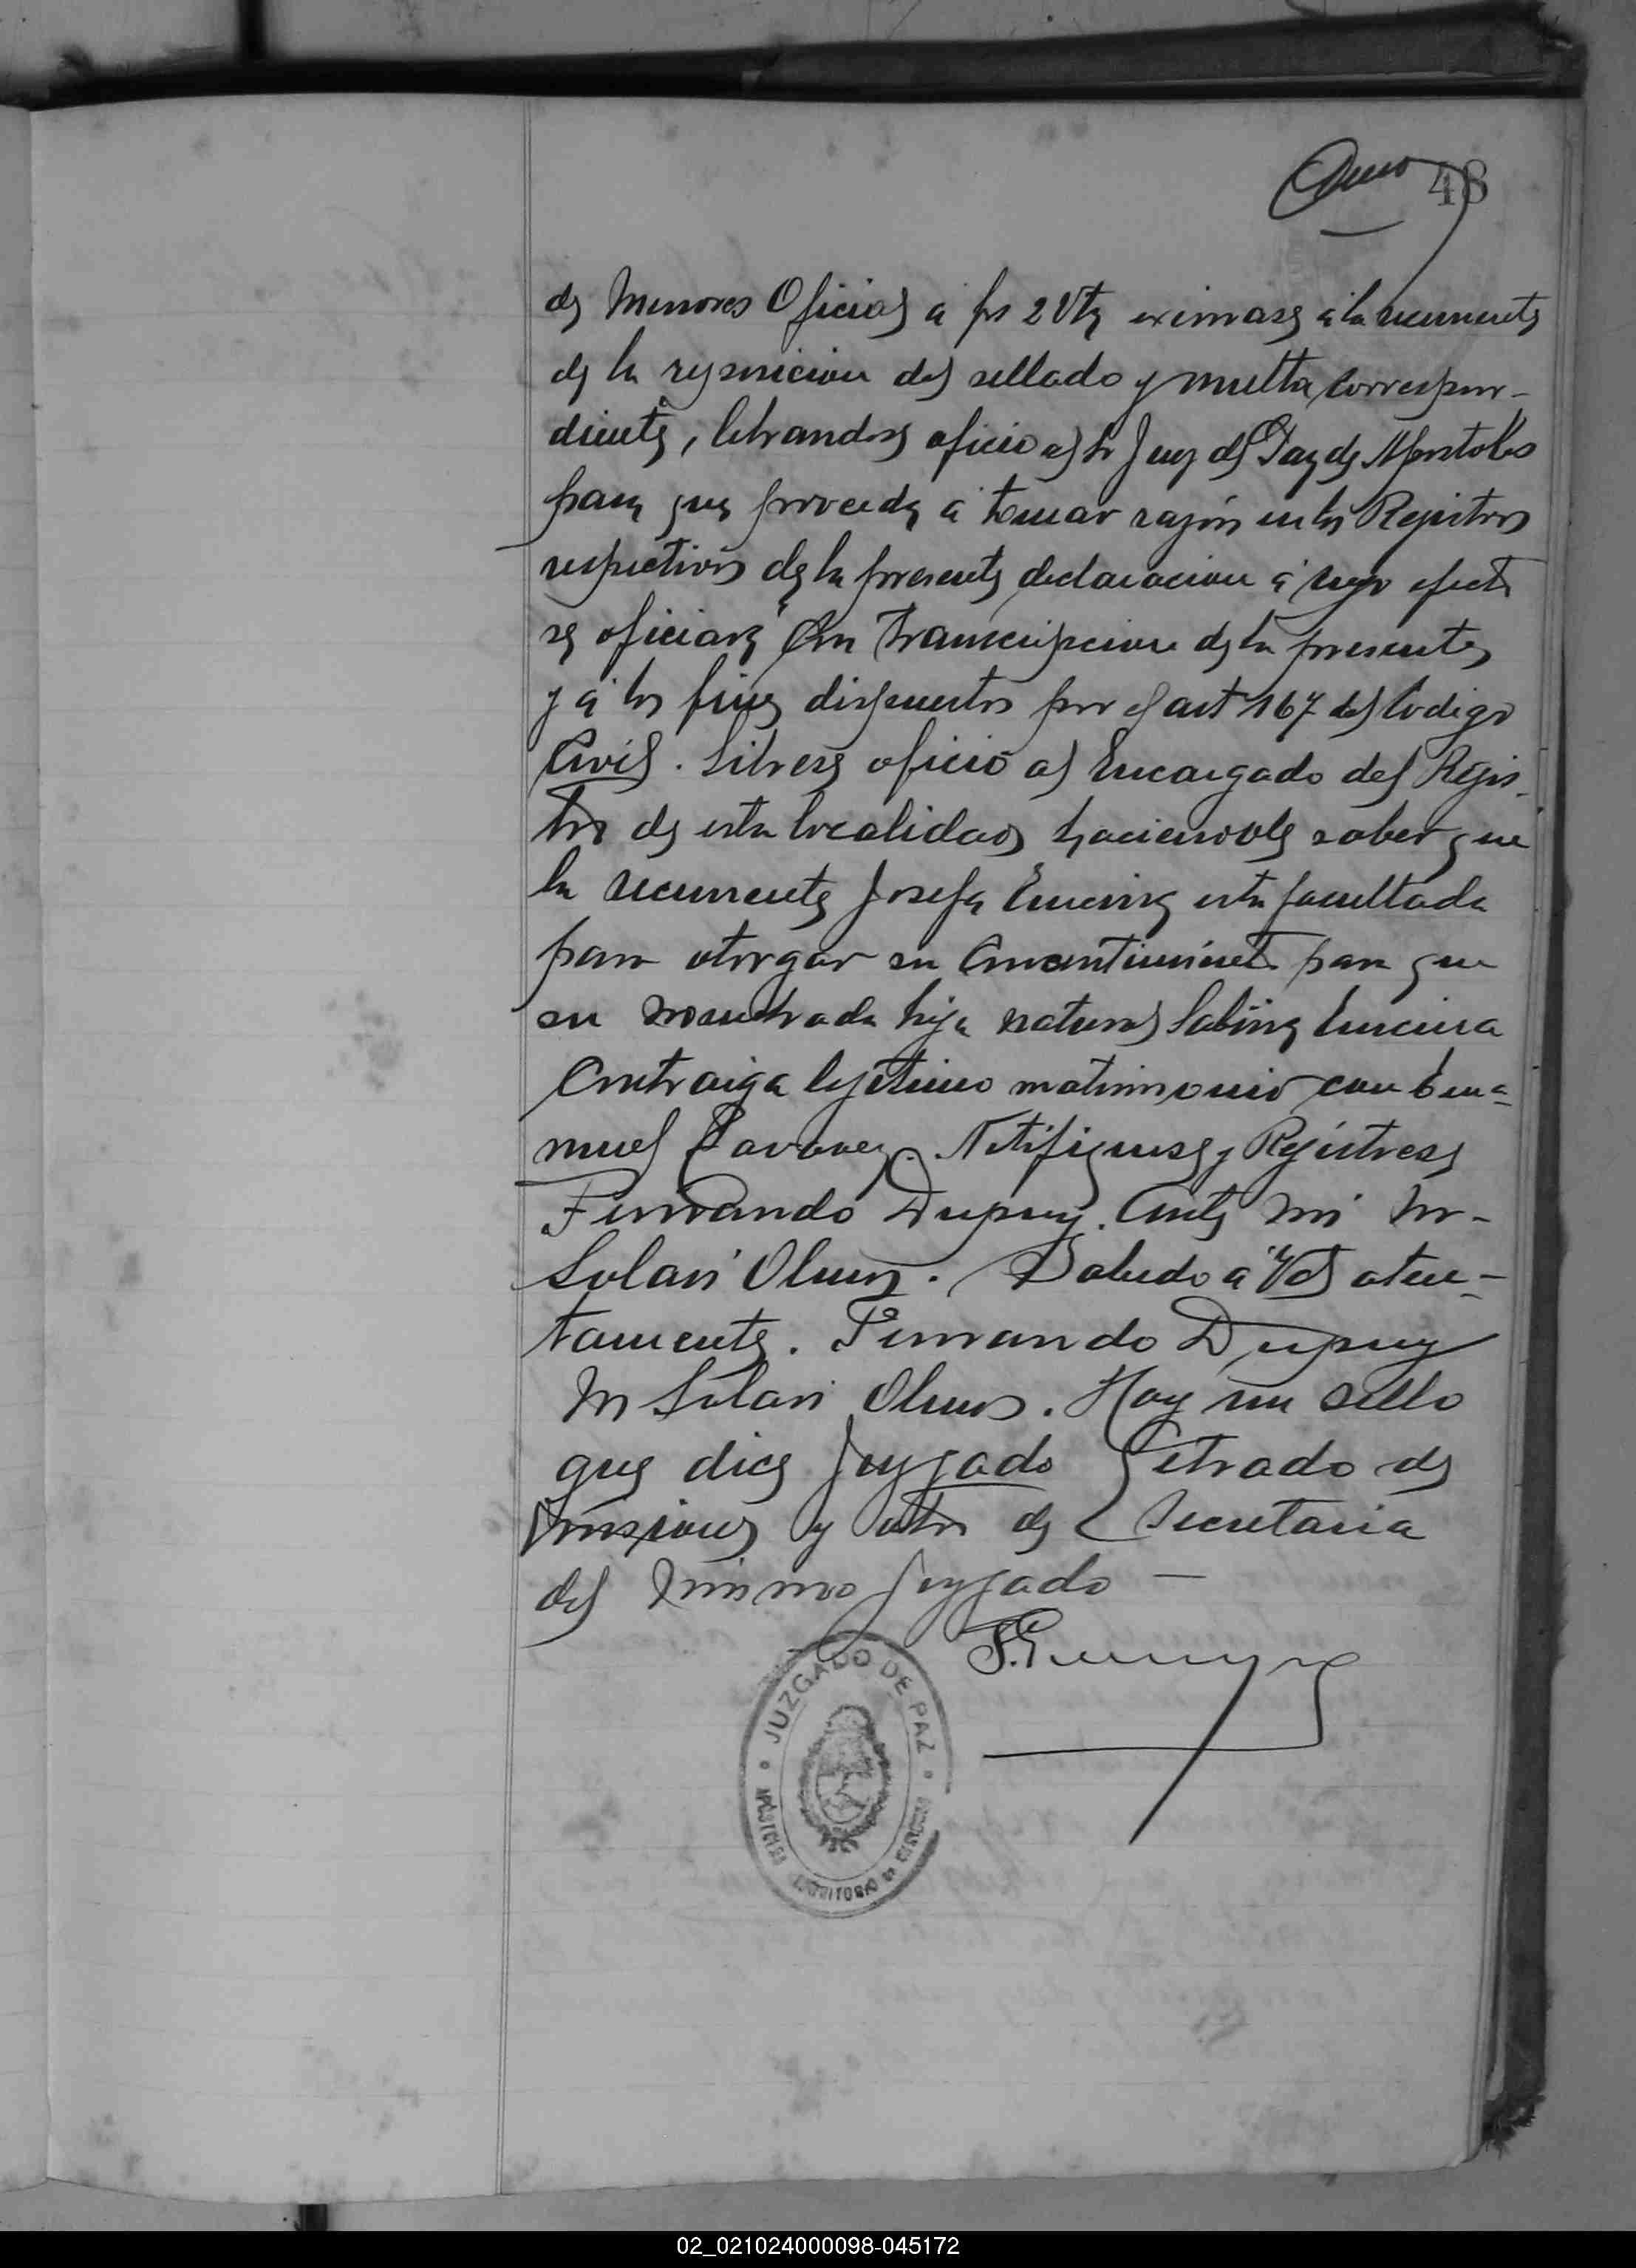 48
de Menores Oficial a fs 2 Vta eximase a la recurrente
de la reposicion del sellado y multa correspon-
diente, librandose oficio al Sr Juez de Paz de Apostoles
para que proceda a tomar razón en los Registros
respectivos de la presente declaracion a cuyo efecto
se oficiará con transcripcion de la presente
y a los fines dispuestos por el art 167 del Codigo
Civil. Librese oficio al Encargado del Regis-
tro de esta localidad haciendole saber que
la recurrente Josefa esta facultada
para otorgar su consentimiento para que
su nombrada hija natural Sabina
Contraiga lejitimo matrimonio con
nuel. Notifiquese y Rejistrese
Fernando Dupuy. Ante mi M-
Solari Olmos. Saludo a Vd aten-
tamente. Fernando Dupuy
M Solari Olmos. Hay un sello
que dice Juzgado Letrado de
Misiones y otro de Secretaria
del mismo Juzgado —
JUZGADO DE PAZ
APOSTOLES TERRITORIO DE MISIONES
02_021024000098-045172